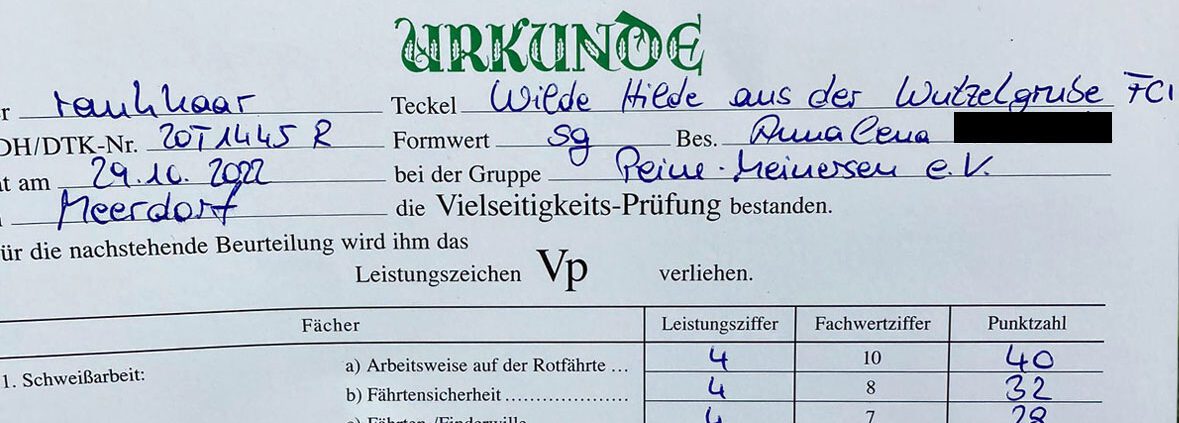 URKUNDE
r rauhhaar Teckel Wilde Hilde aus der Wutzelgrube FCI
DH/DTK-Nr. 20T1445 R Formwert sg Bes. Anna Lena
t am 29.10.2022 bei der Gruppe Peine-Meinersen e.V.
Meerdorf die Vielseitigkeits-Prüfung bestanden.
ür die nachstehende Beurteilung wird ihm das
Leistungszeichen Vp verliehen.
Fächer Leistungsziffer Fachwertziffer Punktzahl
1. Schweißarbeit: a) Arbeitsweise auf der Rotfährte ... 4 10 40
b) Fährtensicherheit .................... 4 8 32
4 7 28